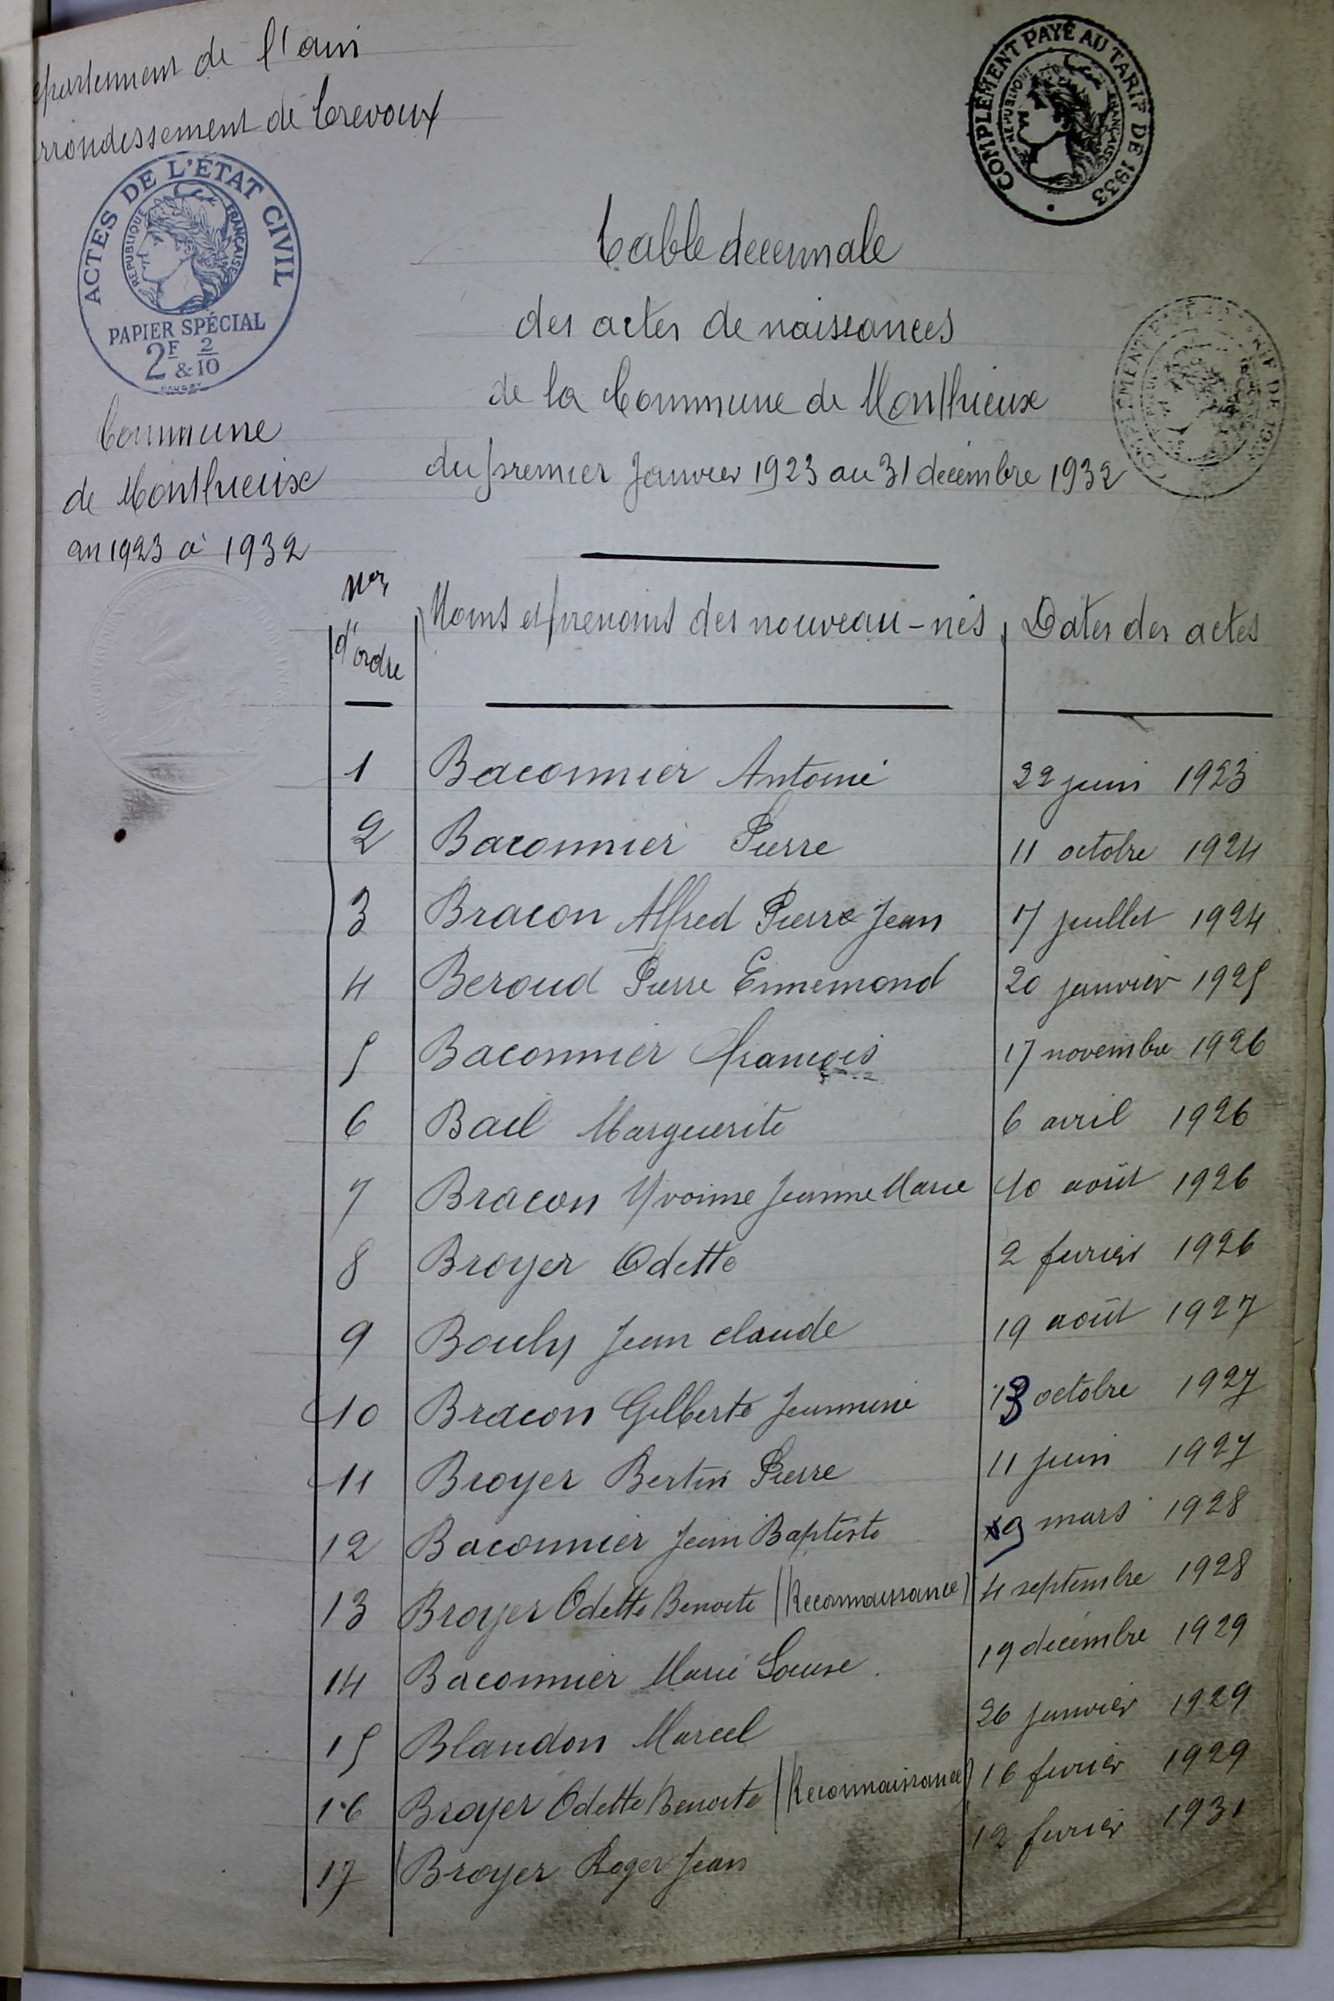 epartement de l'ain
rrondissement de Trevoux
COMPLÉMENT PAYÉ AU TARIF DE 1933
RÉPUBLIQUE FRANÇAISE
ACTES DE L'ÉTAT CIVIL
RÉPUBLIQUE FRANÇAISE
PAPIER SPÉCIAL
2F & 2/10
Table decennale
des actes de naissances
de la Commune de Monthieux
du premier Janvier 1923 au 31 décembre 1932
Commune
de Monthieux
an 1923 à 1932
Nos d'ordre Noms et prenoms des nouveau-nés Dates des actes
1 Baconnier Antoine 22 juin 1923
2 Baconnier Pierre 11 octobre 1924
3 Bracon Alfred Pierre Jean 17 juillet 1924
4 Beroud Pierre Ennemond 20 janvier 1925
5 Baconnier François 17 novembre 1926
6 Bail Marguerite 6 avril 1926
7 Bracon Yvonne Jeanne Marie 10 août 1926
8 Broyer Odette 2 fevrier 1926
9 Bouly Jean claude 19 août 1927
10 Bracon Gilberte Jeannine 13 octobre 1927
11 Broyer Bertin Pierre 11 juin 1927
12 Baconnier Jean Baptiste 9 mars 1928
13 Broyer Odette Benoite (Reconnaissance) 4 septembre 1928
14 Baconnier Marie Louise 19 décembre 1929
15 Blandon Marcel 26 janvier 1929
16 Broyer Odette Benoite (Reconnaissance) 16 fevrier 1929
17 Broyer Roger Jean 12 fevrier 1931